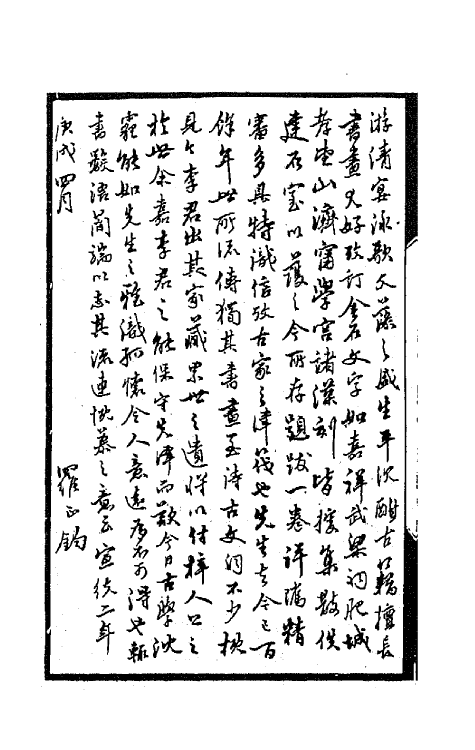 游清宴泳歌文藻之盛生平沈酣古籍擅長
書畫又好攷訂金石文字如嘉祥武梁祠肥城
孝堂山濟甯學宮諸漢刻皆搜集散佚
建石室以護之今所存題跋一卷詳識精
審多具特識信攷古家之津筏也先生去今已百
餘年世所流傳獨其書畫至詩古文詞不少概
見今李君出其家藏累世之遺將以付梓人公之
於世余嘉李君之能保守先澤而歎今日古學沈
霾能如先生之雅識孤懷令人意遠者不可得也輒
書數語簡端以志其流連忱慕之意云宣統二年
庚戌四月 羅正鈞